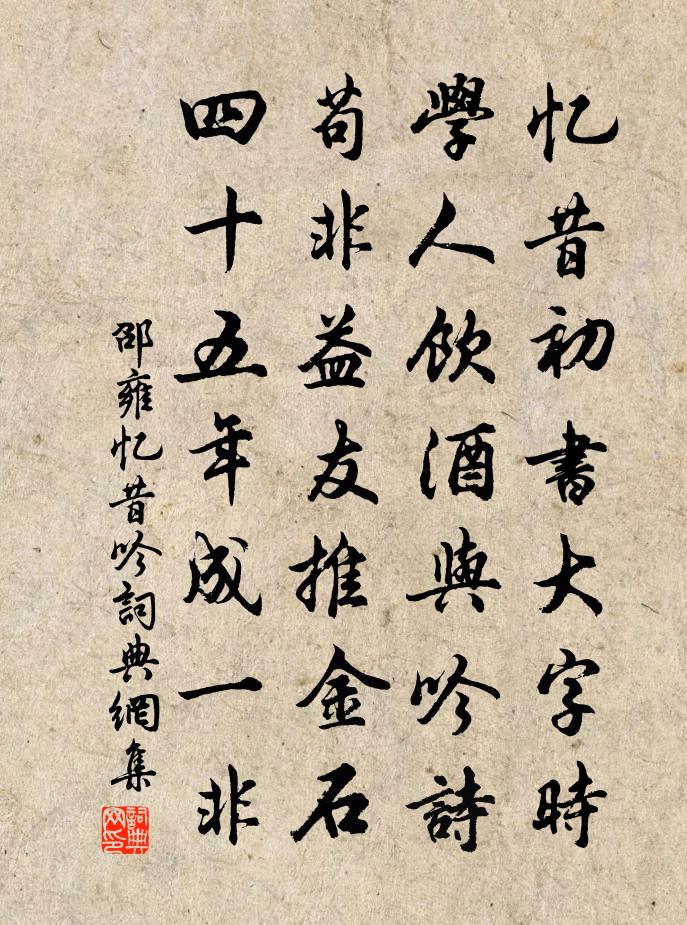 忆昔初書大字時
學人飲酒與吟詩
苟非益友推金石
四十五年成一非
邵雍忆昔吟詞典網集
詞典网印